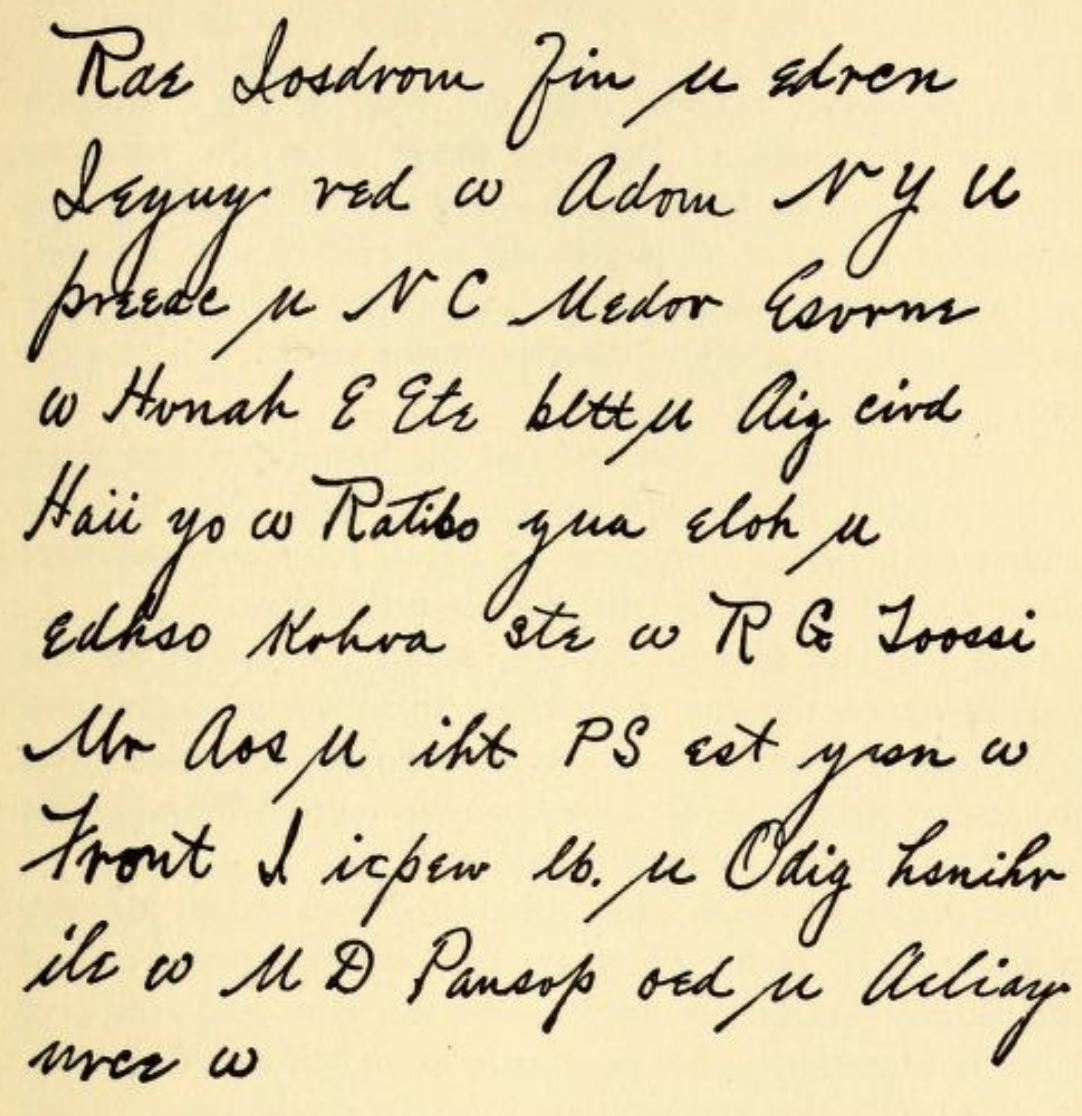 Rae Iosdrom Zin u edren
Ieyuy red w Adom N Y U
preeae u N C Medor Esvrne
w Hvnah E Ete bltt u Aig civd
Haii yo w Ratibo yua eloh u
edhso Kohva ste w R G Toossi
Mr Aos u iht PS est yrsn w
Front I icpew lb. u Odig hsnihr
ile w M D Pausop oed u Aeliay
nrce w